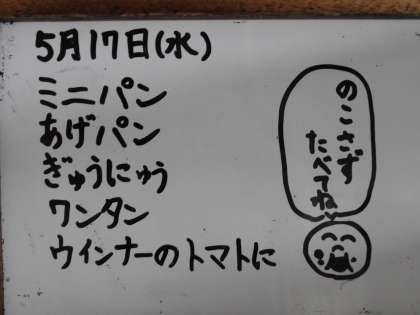 5月17日(水)
ミニパン
あげパン
ぎゅうにゅう
ワンタン
ウインナーのトマトに
のこさず
たべてね